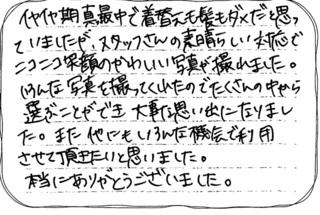 イヤイヤ期真最中で着替えも髪もダメだと思っ
ていましたが、スタッフさんの素晴らしい対応で
ニコニコ笑顔のかわいい写真が撮れました。
いろんな写真を撮ってくれたのでたくさんの中から
選ぶことができ大事な思い出になりまし
た。また他にもいろんな機会で利用
させて頂きたいと思いました。
本当にありがとうございました。